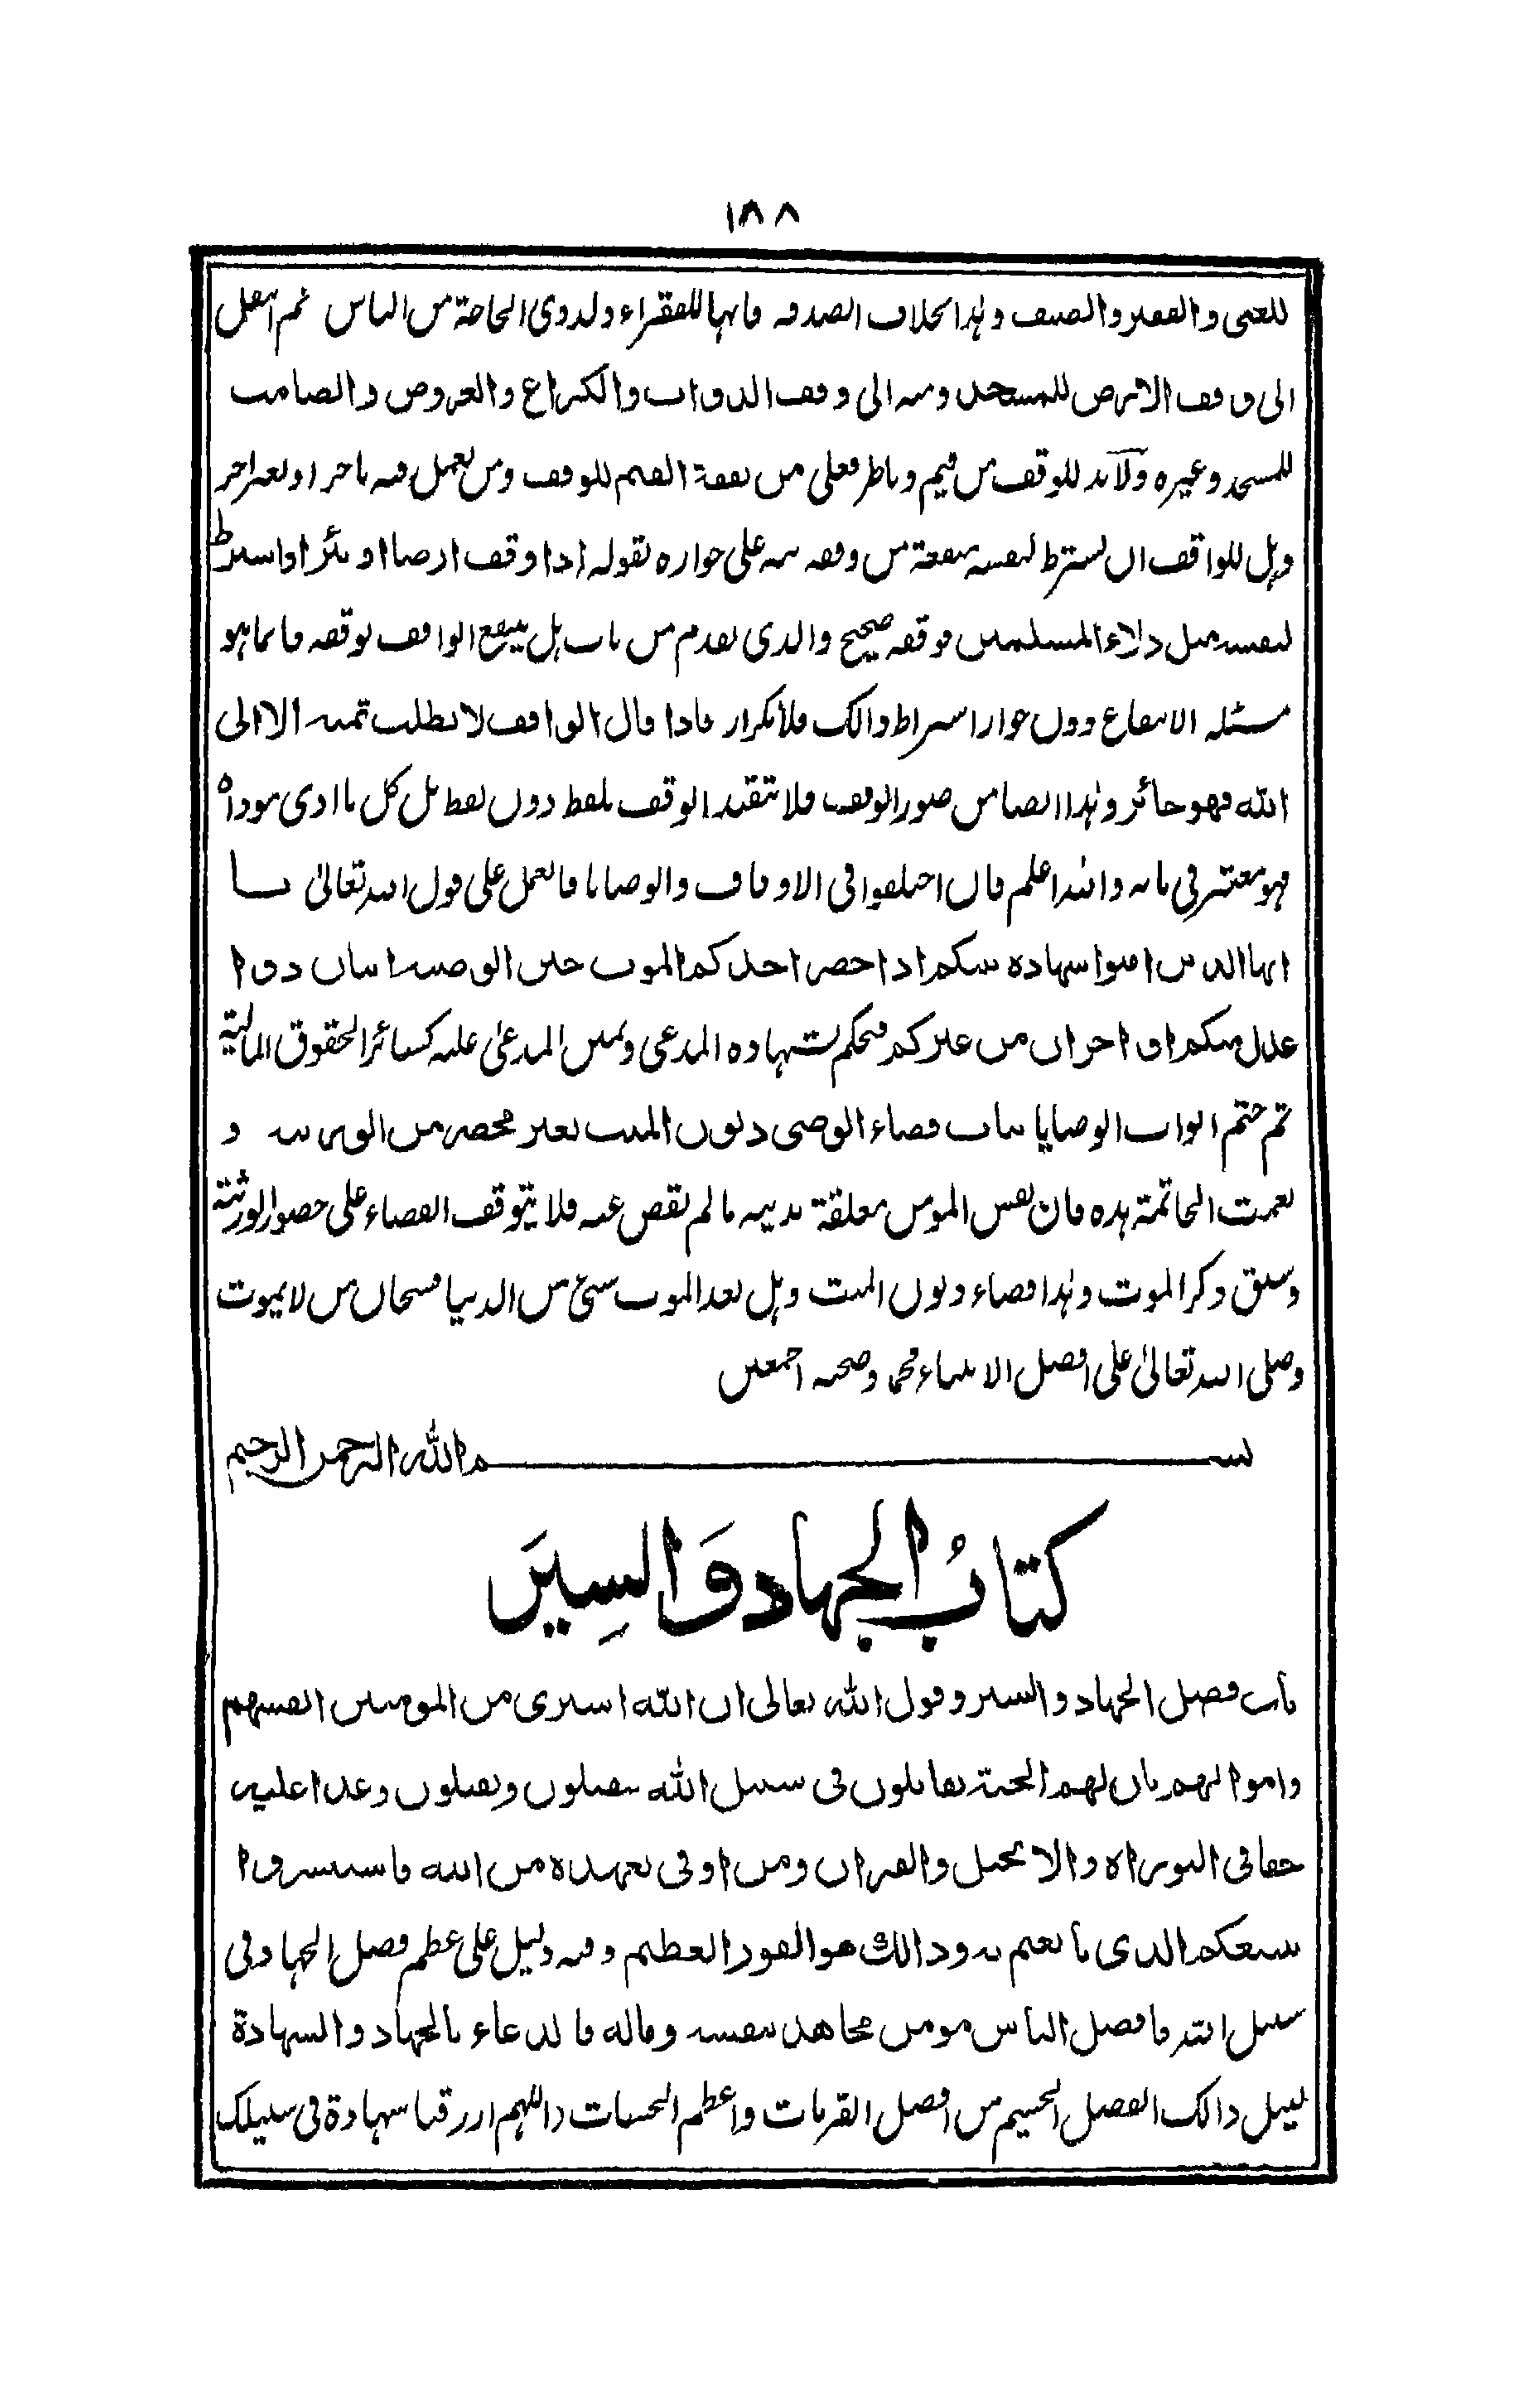 ١٨٨
للغنى والفقير والضيف وهٰذا بخلاف الصدقه فانها للفقراء ولذوى الحاجة من الناس ثم انتقل
الى وقف الارض للمسجد ومنه الى وقف الدواب والكراع والعروض والصامت
للمسجد وغيره ولابد للوقف من قيم وناظر فعلى من نفقة القيم للوقف ومن يعمل فيه باجر او بغير اجر
وهل للواقف ان يشترط لنفسه منفعة من وقفه نبه على جوازه بقوله اذا وقف ارضا او بئرا واشترط
لنفسه مثل دلاء المسلمين فوقفه صحيح والذى تقدم من باب هل ينتفع الواقف بوقفه فانما هو
مسئلة الانتفاع دون جواز اشتراط ذالك فلا تكرار فاذا قال الواقف لا نطلب ثمنه الا الى
الله فهو جائز وهٰذا ايضا من صور الوقف فلا تتقيد الوقف بلفظ دون لفظ بل كل ما ادى موداه
فهو معتبر فى بابه والله اعلم فان اختلفوا فى الاوقاف والوصايا فالعمل على قول الله تعالىٰ يا
ايها الذين امنوا شهادة بينكم اذا حضر احدكم الموت حين الوصية اثنان ذوا
عدل منكم او اخران من غيركم فيحكم بشهادة المدعى ويمين المدعىٰ عليه كسائر الحقوق المالية
ثم ختم ابواب الوصايا بباب قضاء الوصى ديون الميت بغير محضر من الورثة و
نعمت الخاتمة هذه فان نفس المومن معلقة بدينه ما لم يقض عنه فلا يتوقف القضاء على حضور الورثة
وسبق ذكر الموت وهٰذا قضاء ديون الميت وهل بعد الموت شئ من الدنيا فسبحان من لا يموت
وصلى الله تعالىٰ على افضل الانبياء محمد وصحبه اجمعين
بسم الله الرحمن الرحيم
كتابُ الجهاد وَالسِيَر
باب فضل الجهاد والسير وقول الله تعالى ان الله اشترى من المومنين انفسهم
واموالهم بان لهم الجنة يقاتلون فى سبيل الله فيقتلون ويقتلون وعدا عليه
حقا فى التوراة والانجيل والقران ومن اوفى بعهده من الله فاستبشروا
ببيعكم الذى بايعتم به وذالك هو الفوز العظيم وفيه دليل على عظم فضل الجهاد فى
سبيل الله فافضل الناس مومن مجاهد بنفسه وماله فالدعاء بالجهاد والشهادة
لنيل ذالك الفضل الجسيم من افضل القربات واعظم الحسنات واللهم ارزقنا شهادة فى سبيلك